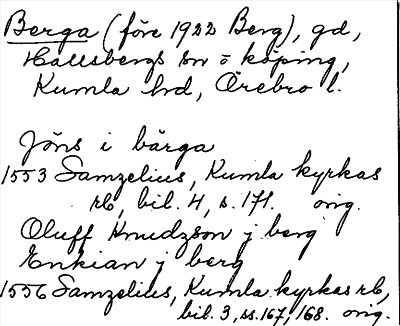 Berga (före 1922 Berg), gd,
Hallsbergs sn o köping,
Kumla hd, Örebro l.
Jöns i bärga
1553 Samzelius, Kumla kyrkas
rb, bil. 4, s. 171. orig.
Oluff Knudzson j berg
Enkian j berg
1556 Samzelius, Kumla kyrkas rb,
bil. 3, ss. 167, 168. orig.